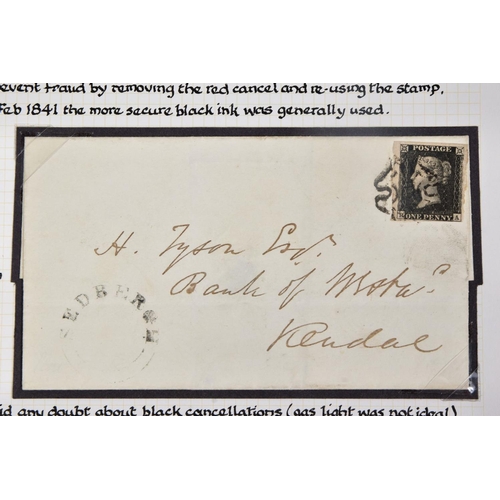 event fraud by removing the red cancel and re-using the stamp.
Feb 1841 the more secure black ink was generally used.
POSTAGE
ONE PENNY
A
H. Tyson Esqr.
Bank of Westd.
Kendal
EDBERGH
id any doubt about black cancellations (gas light was not ideal)